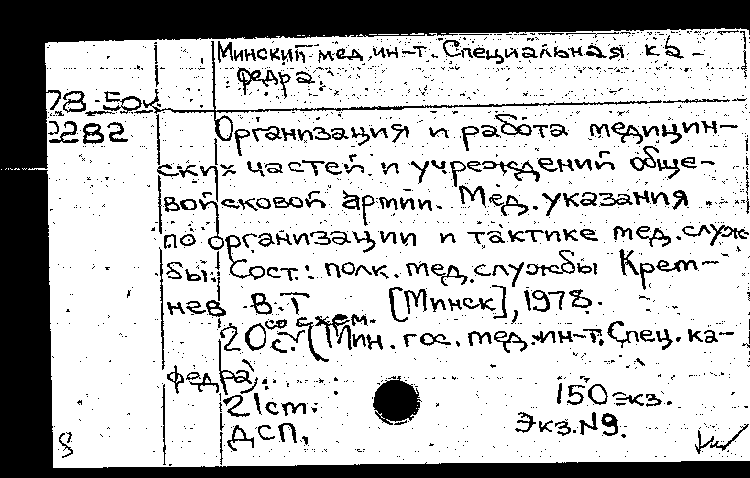 Минский мед. ин-т. Специальная ка-
федра.
78-50к
2282
Организация и работа медицин-
ских частей и учреждений обще-
войсковой армии. Мед. указания
по организации и тактике мед. служ
бы. Сост.: полк. мед. службы Крем-
нев В.Т [Минск], 1978.
со схем.
20 с. (Мин. гос. мед. ин-т. Спец. ка-
федра).
21 cm.
150 экз.
ДСП.
Экз. N9.
8